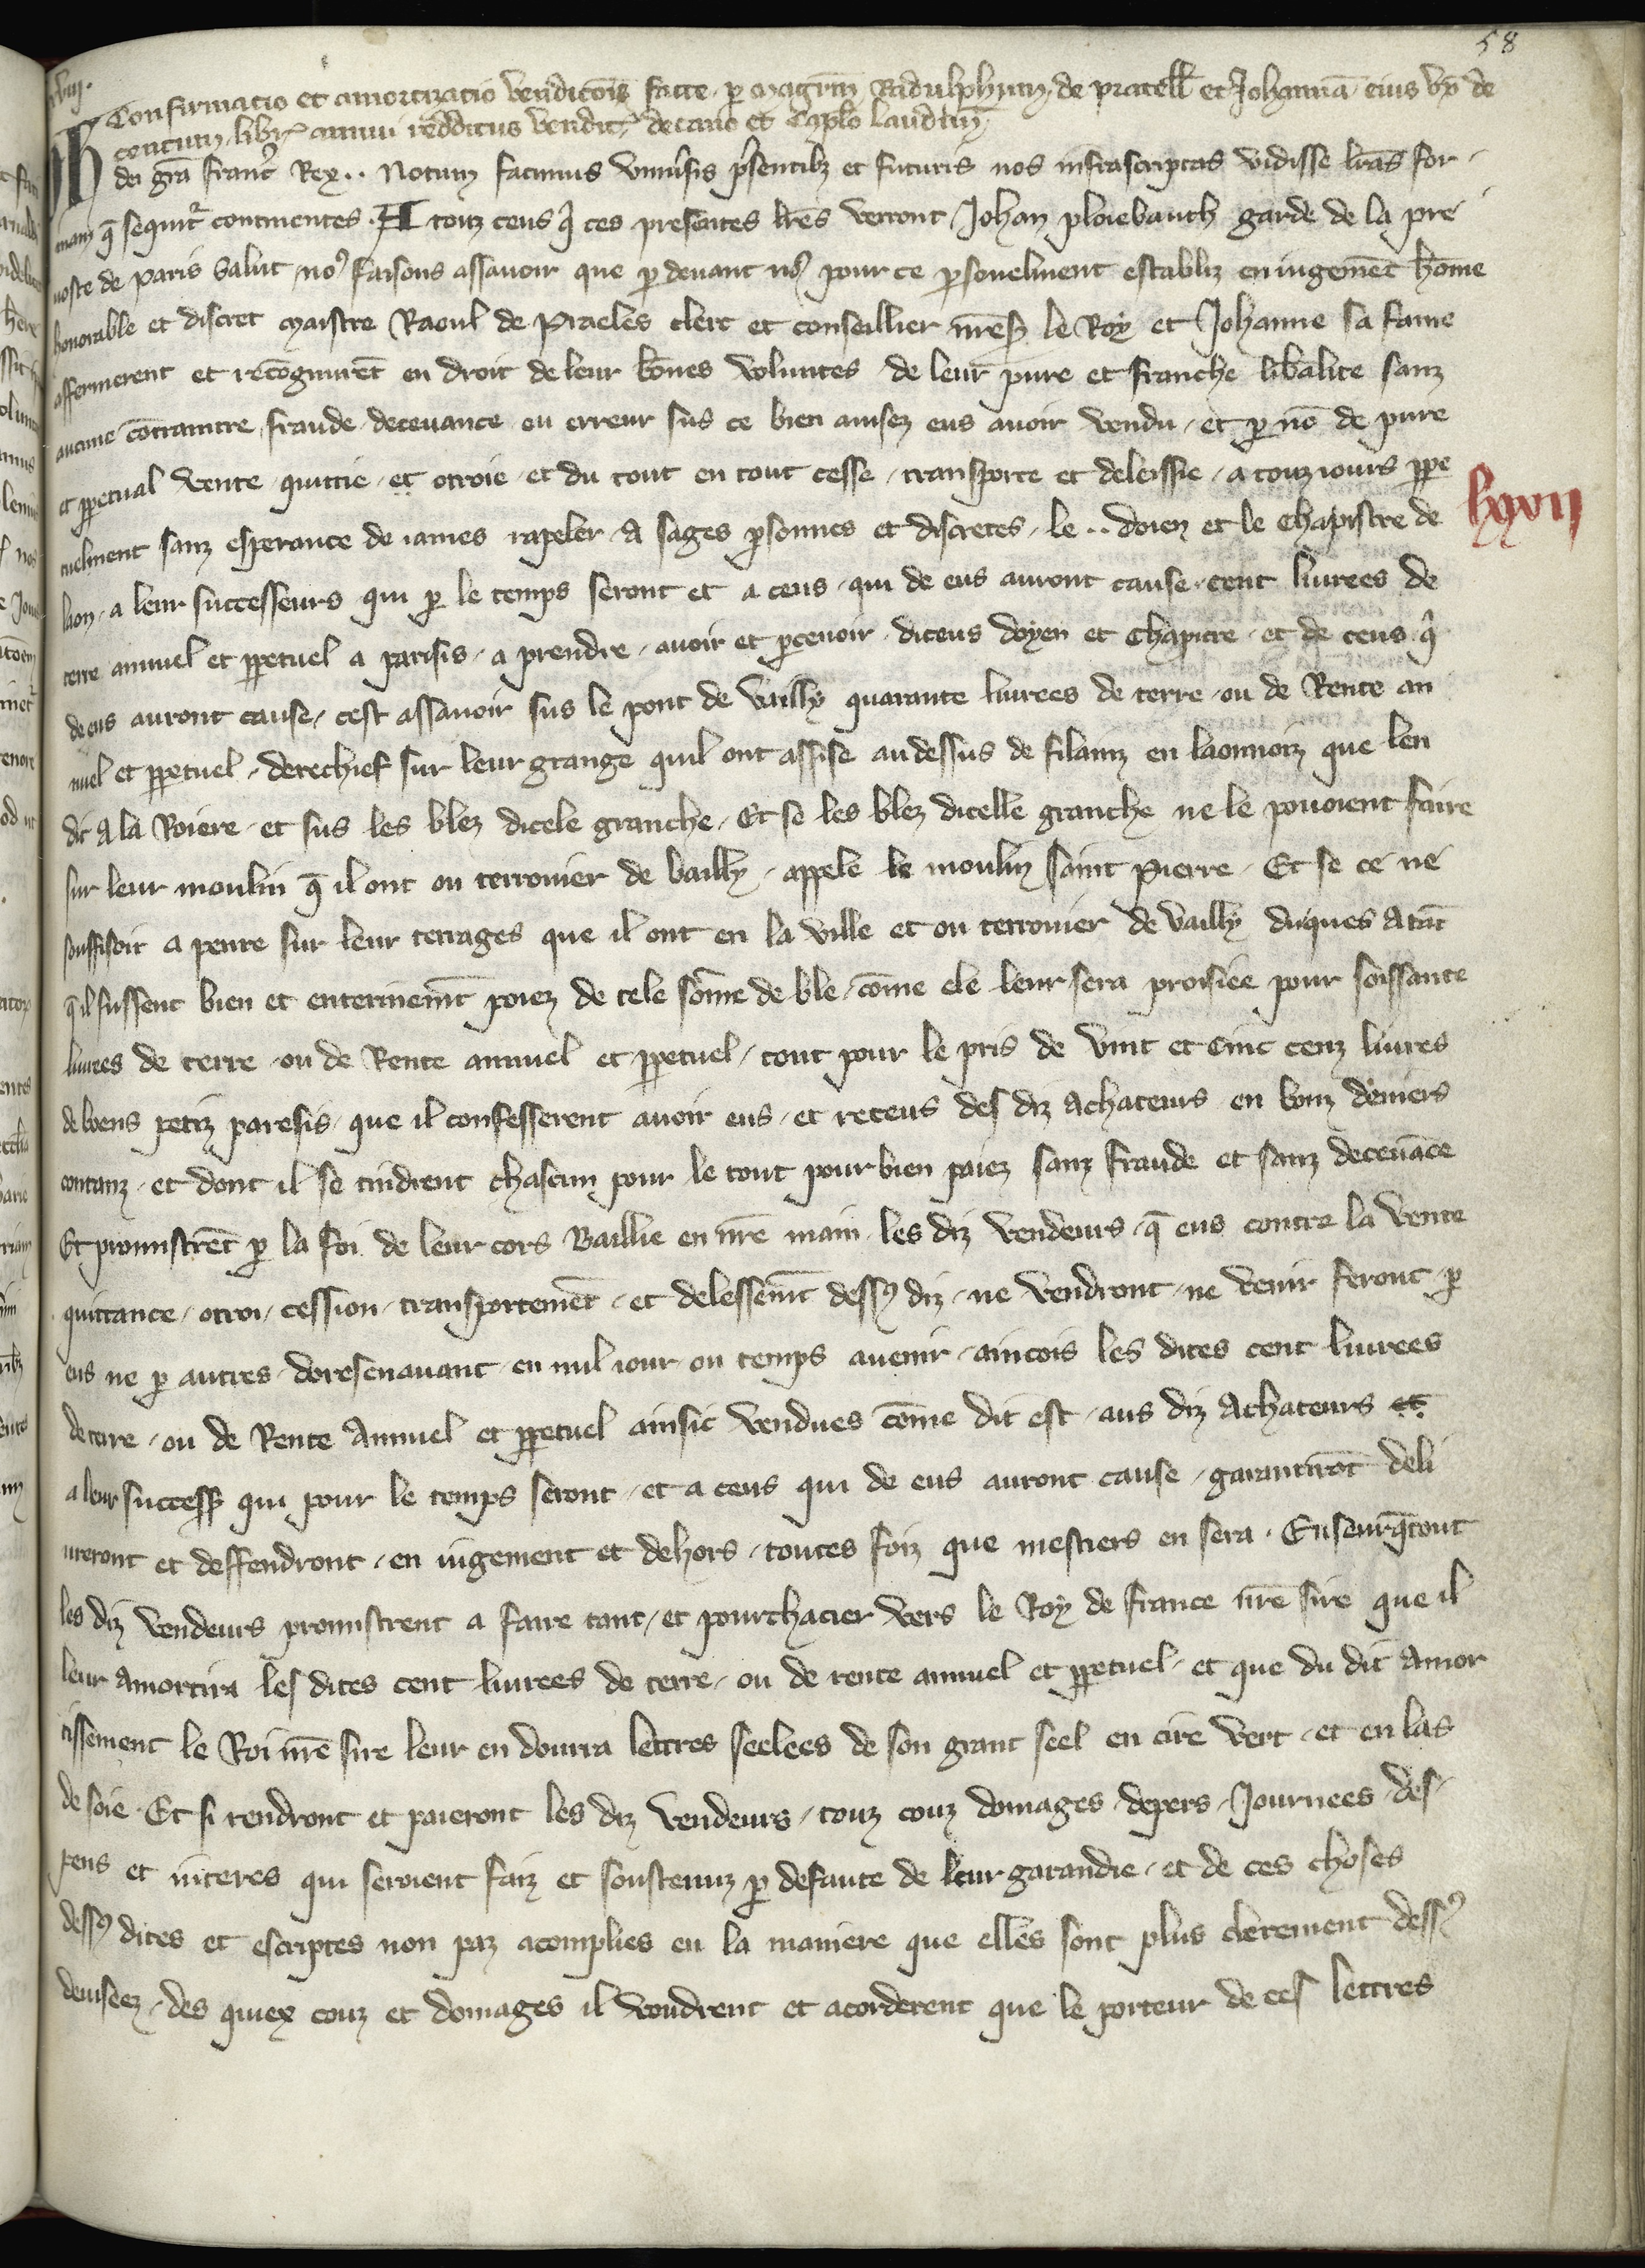 58
Confirmatio et amortizatio vendicōis facte p magrm Radulphum de pratell et Johannā eius vx de
centum libr annui redditus vendit decano et Caplo laudun
Ph
dei grā franc Rex .. Notum facimus vniusis psentibz et futuris nos infrascriptas vidisse lrās for
mam q̄ sequit continentes. A touz ceus q̄ ces presentes lrēs verront Johan ploiebauch garde de la pre
uoste de paris Salut no9 faisons assauoir que p deuant no9 pour ce psonelment establiz en iugemēt hōme
honorable et discret maistre Raoul de Praeles clerc et conseillier nrēs le Roy et Johanne sa fame
affermerent et recōgnurēt en droit de leur bōnes voluntes de leur pure et franche libalite sanz
aucune cōtrainte fraude deceuance ou erreur sus ce bien auisez eus auoir vendu et p nō de pure
et ppetual vente quittie et otroie et du tout en tout cesse transporte et delessie a touz iours ppe
tuelment sanz esperance de iames rapeler A sages psonnes et discretes le .. doien et le Chapistre de
lxxvii
laon a leur successeurs qui p le temps seront et a ceus qui de eus auront cause cent liurees de
terre annuel et ppetuel a parisis a prendre auoir et pceuoir diceus doyen et Chapitre et de ceus q̄
de eus auront cause cest assauoir sus le pont de vailly quarante liurees de terre ou de Rente an
nuel et ppetuel derechief sur leur grange quil ont assise au dessus de filainz en laonnoiz que len
dit A la Roiere et sus les blez dicele granche Et se les blez dicelle granche ne le pouoient faire
sur leur moulin q̄ il ont ou terrouier de vailly appele le moulin saint Pierre Et se ce ne
souffisoit a penre sur leur terrages que il ont en la ville et ou terrouier de vailly duques atāt
q̄ il fussent bien et enterinemt poiez de cele sōme de ble cōme ele leur sera proisiee pour soissante
liurees de terre ou de Rente annuel et ppetuel tout pour le pris de vint et cinc cenz liures
de boens petiz paresis que il confesserent auoir eus et receus des diz achateurs en bonz deniers
contanz et dont il se tindrent chascun pour le tout pour bien paiez sanz fraude et sanz deceuāce
Et promistrēt p la foi de leur cors Baillie en nrē main les diz vendeurs q̄ eus contre la vente
quittance otroi cession transportemēt et delessemt dess9 diz ne vendront ne venir feront p
eus ne p autres doresenauant en nul iour ou temps auenir aincois les dites cent liurees
de terre ou de Rente Annuel et ppetuel ainsic vendues cōme dit est aus diz Achateurs et
a leur success qui pour le temps seront et a ceus qui de eus auront cause garantirōt deli
ureront et deffendront en iugement et dehors toutes foiz que mestiers en sera Enseurq̄tout
les diz vendeurs promistrent a faire tant et pourchacier vers le Roy de france nrē sire que il
leur amortira les dites cent liurees de terre ou de rente annuel et ppetuel et que du dit amor
tissement le Roi nrē sire leur en donrra lettres seelees de son grant seel en cire vert et en las
de soie Et si rendront et paieront les diz vendeurs touz couz domages depers Journees des
pens et interes qui seroient faiz et soustenuz p defaute de leur garandie et de ces choses
dess9 dites et escriptes non paz acomplies en la maniere que elles sont plus clerement dess9
deuiseez des quiex couz et domages il voudrent et acorderent que le porteur de ces lettres